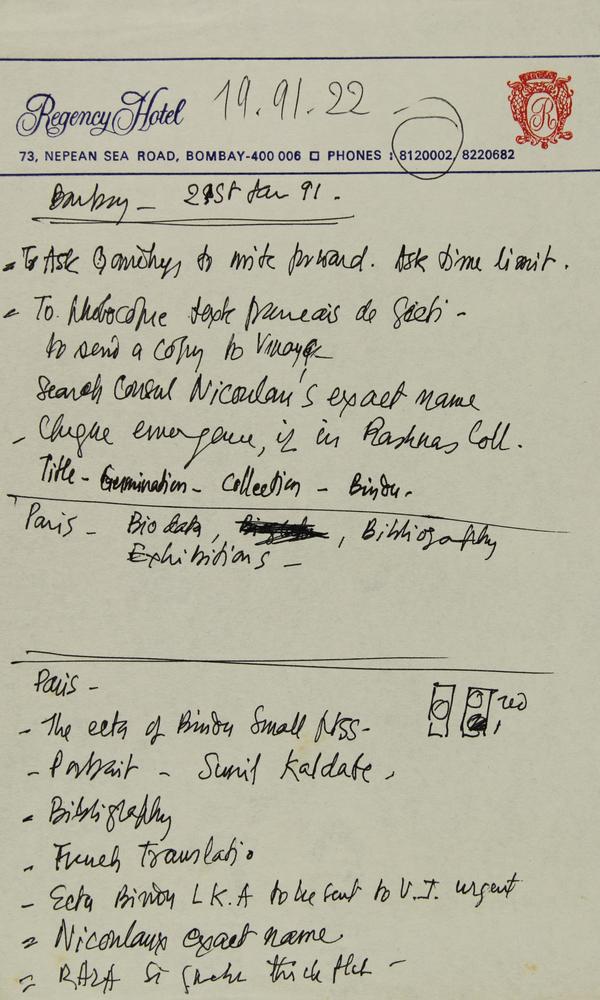 Regency Hotel 19.91.22
R
73, NEPEAN SEA ROAD, BOMBAY-400 006 PHONES : 8120002, 8220682
Bombay - 21st Jan 91.
- To Ask to write forward. Ask time limit.
- To Photocopie texte francais de -
to send a copy to
Search Consul Nicoulau's exact name
- emergence, if in Coll.
Title - Germination - Collection - Bindu.
Paris - Bio data, , Bibliography
Exhibitions -
Paris -
red
- The ecta of Bindu Small -
- Portrait - Sunil Kaldate,
- Bibliography
- French Translatio
- Ecta Bindu L.K.A to be sent to V.J. urgent
- Nicoulaux exact name
- RAZA thick -